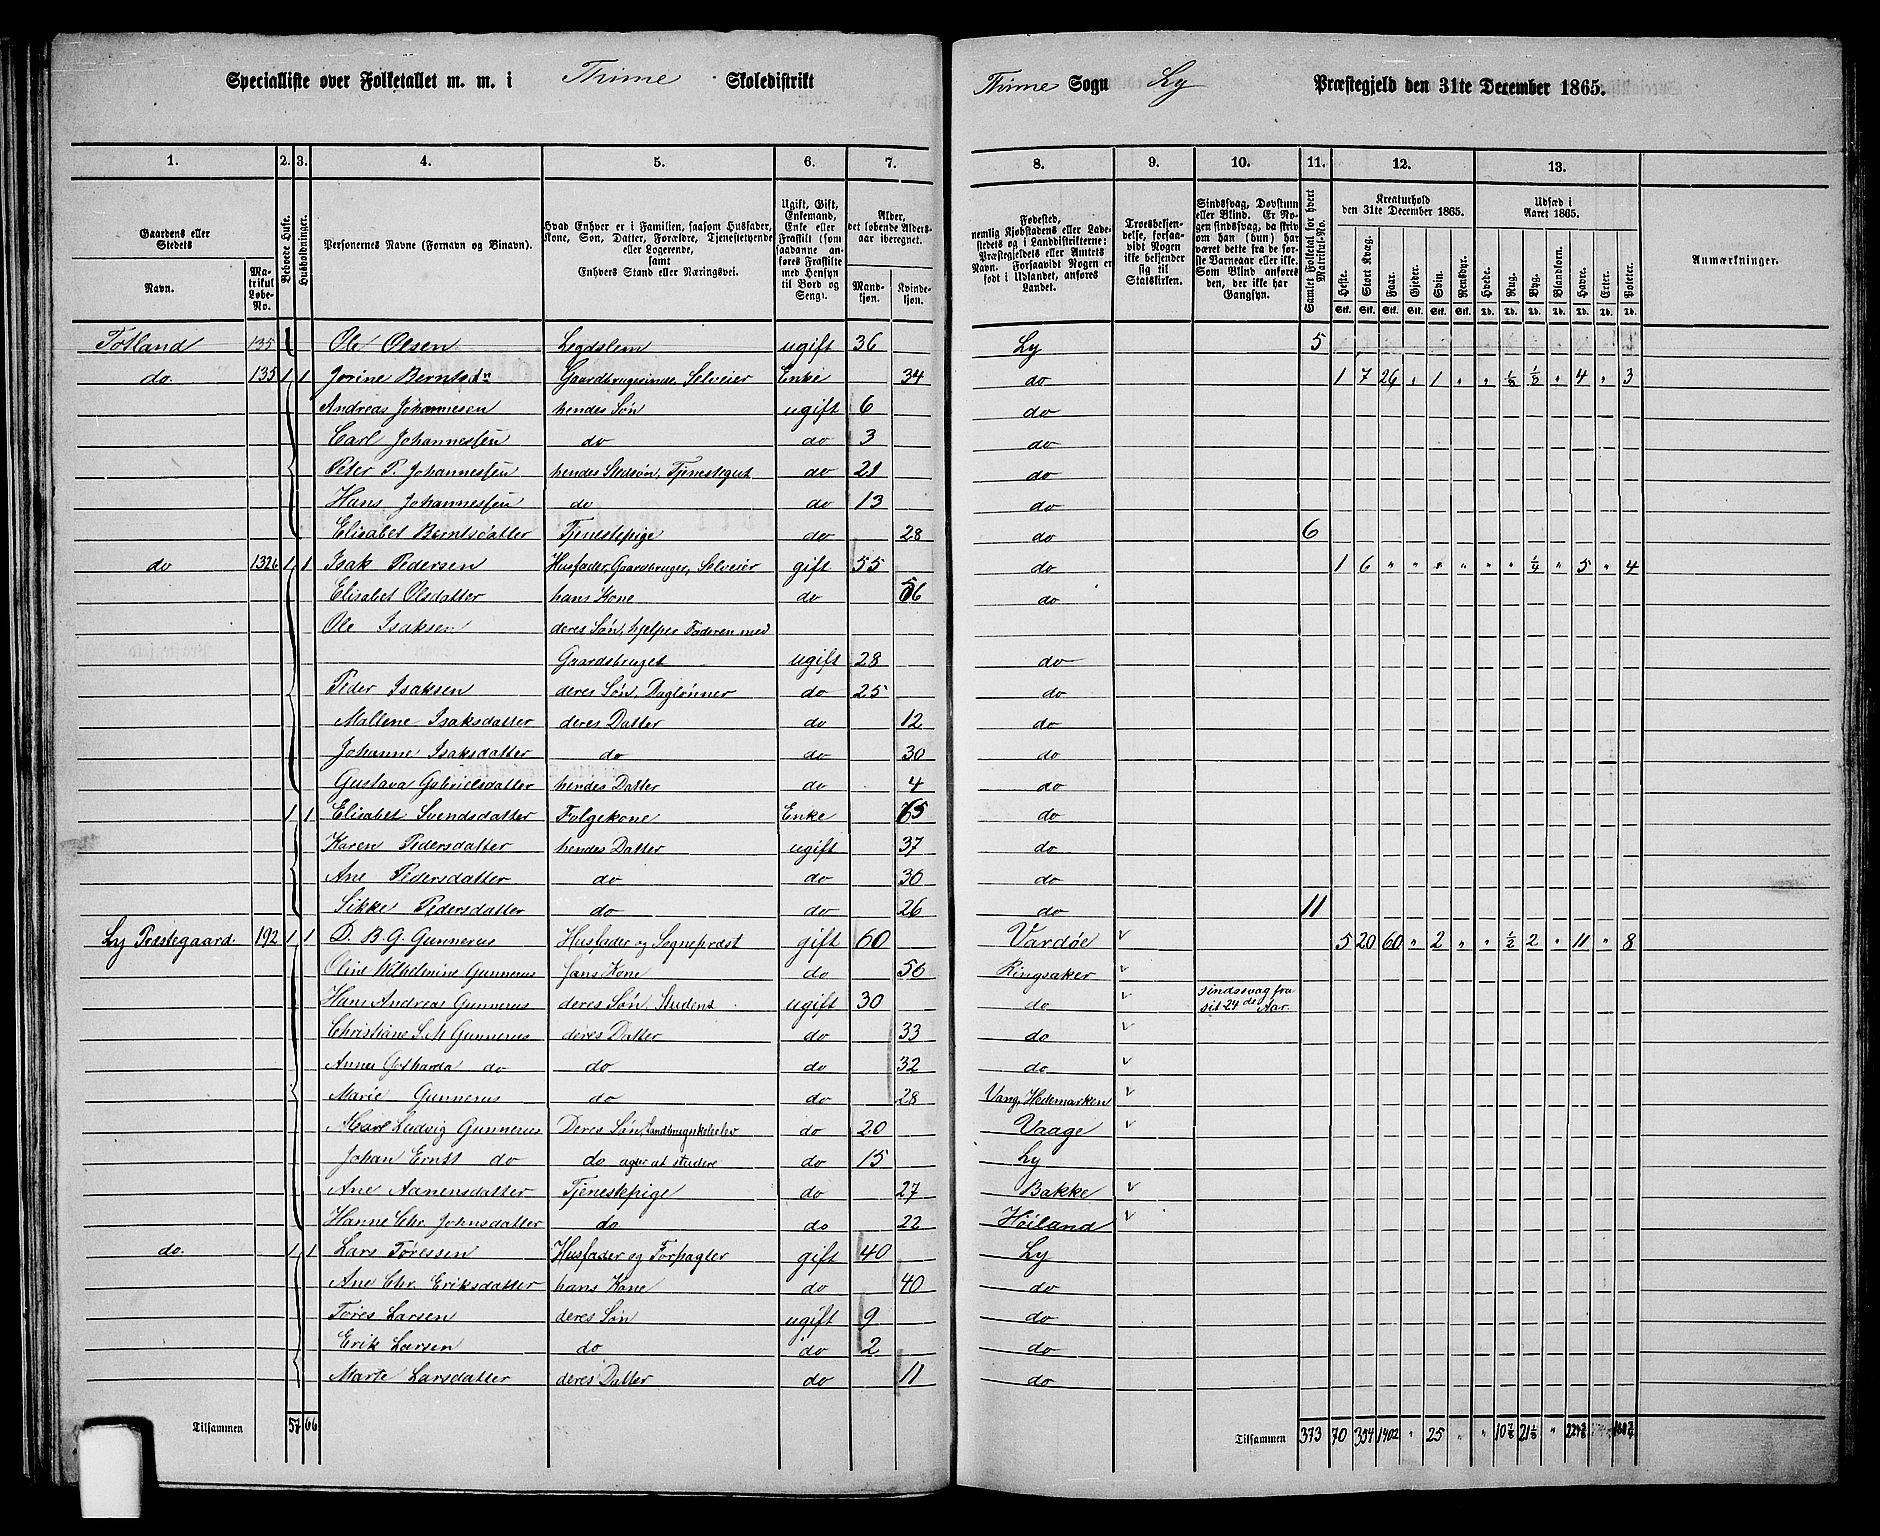 Specialliste over Folketallet m. m. i Thime Skoledistrikt Thime Sogn Ly Præstegjeld den 31te December 1865.
1. 2. 3. 4. 5. 6. 7. 8. 9. 10. 11. 12. 13.
Gaardens eller Stedets
Navn.
Matrikul Løbe-No.
Beboede Huse.
Husholdninger.
Personernes Navne (Fornavn og Binavn).
Hvad Enhver er i Familien, saasom Husfader, Kone, Søn, Datter, Forældre, Tjenestetyende eller Logerende, samt Enhvers Stand eller Næringsvei.
Ugift, Gift, Enkemand, Enke eller Fraskilt (som saadanne anføres Fraskilte med Hensyn til Bord og Seng).
Alder, det løbende Alders-aar iberegnet.
Mandkjøn. Kvindekjøn.
Fødested, nemlig Kjøbstadens eller Ladestedets og i Landdistrikterne: Præstegjeldets eller Amtets Navn. Forsaavidt Nogen er født i Udlandet, anføres Landet.
Troesbekjendelse, forsaavidt Nogen ikke bekjender sig til Statskirken.
Sindssvag, Døvstum eller Blind. Er Nogen sindssvag, da skriv om han (hun) har været dette fra de første Barneaar eller ikke. Som Blind anføres den, der ikke har Gangsyn.
Samlet Folketal for hvert Matrikul-No.
Kreaturhold den 31te December 1865.
Heste. Stort Kvæg. Faar. Gjeder. Svin. Rensdyr.
Udsæd i Aaret 1865.
Hvede. Rug. Byg. Blandkorn. Havre. Erter. Poteter.
Anmærkninger.
Totland 135 Ole Olsen Legdslem ugift 36 Ly 5
do. 135 1 1 Jorine Berntsd Gaardbrugerinde, Selveier Enke 34 do 1 7 26 " 1 " " 1/8 1/3 " 4 " 3
Andreas Johannesen hendes Søn ugift 6 do
Carl Johannessen do do 3 do
Peter P. Johannessen hendes Stedsøn, Tjenestegut do 21 do
Hans Johannessen do do 13 do
Elisabet Berntsdatter Tjenestepige do 28 do 6
do 132b 1 1 Isak Pedersen Husfader, Gaardbruger, Selveier gift 55 do 1 6 " " " " " " 1/4 " 5 " 4
Elisabet Olsdatter hans Kone do 56 do
Ole Isaksen deres Søn, hjelper Faderen med
Gaardsbruget ugift 28 do
Peder Isaksen deres Søn, Daglønner do 25 do
Maltene Isaksdatter deres Datter do 12 do
Johanne Isaksdatter do do 30 do
Gustava Gabrielsdatter hendes Datter do 4 do
1 1 Elisabet Svendsdatter Folgekone Enke 65 do
Karen Pedersdatter hendes Datter ugift 37 do
Ane Pedersdatter do do 30 do
Sikke Pedersdatter do do 26 do 11
Ly Præstegaard. 192 1 1 D. B. G. Gunnerus Husfader og Sogneprest gift 60 Vardøe v 5 20 60 " 2 " " 1/2 2 " 11 " 8
Oline Wilhelmine Gunnerus hans Kone do 56 Ringsaker v
Hans Andreas Gunnerus deres Søn, Student ugift 30 do v sindssvag fra
sit 24de Aar.
Christiane S. M. Gunnerus deres Datter do 33 do v
Anna Gotharda do do do 32 do v
Marie Gunnerus do do 28 Vang, Hedemarken v
Ludvig Gunnerus Deres Søn, do 20 Vaage v
Johan Ernst do do agter at studere do 15 Ly
Ane Aanensdatter Tjenestepige do 27 Bakke v
Hanne Chr. Johnsdatter do do 22 Høiland v
do. 1 1 Lars Tøressen Husfader og Forpagter gift 40 Ly
Ane Chr. Eriksdatter hans Kone do 40 do
Tøres Larsen deres Søn ugift 9 do
Erik Larsen do do 2 do
Marte Larsdatter deres Datter do 11 do
Tilsammen 57 66 Tilsammen 373 70 354 1402 " 25 " " 10 7/8 21 1/8 "